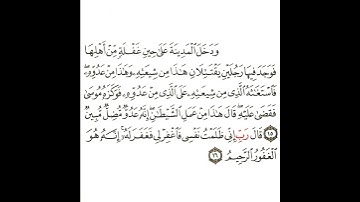 وَدَخَلَ ٱلْمَدِينَةَ عَلَىٰ حِينِ غَفْلَةٍ مِّنْ أَهْلِهَا
فَوَجَدَ فِيهَا رَجُلَيْنِ يَقْتَتِلَانِ هَٰذَا مِن شِيعَتِهِۦ وَهَٰذَا مِنْ عَدُوِّهِۦ ۖ
فَٱسْتَغَٰثَهُ ٱلَّذِى مِن شِيعَتِهِۦ عَلَى ٱلَّذِى مِنْ عَدُوِّهِۦ فَوَكَزَهُۥ مُوسَىٰ
فَقَضَىٰ عَلَيْهِ ۖ قَالَ هَٰذَا مِنْ عَمَلِ ٱلشَّيْطَٰنِ ۖ إِنَّهُۥ عَدُوٌّ مُّضِلٌّ مُّبِينٌ
١٥ قَالَ رَبِّ إِنِّى ظَلَمْتُ نَفْسِى فَٱغْفِرْ لِى فَغَفَرَ لَهُۥٓ ۚ إِنَّهُۥ هُوَ
ٱلْغَفُورُ ٱلرَّحِيمُ ١٦